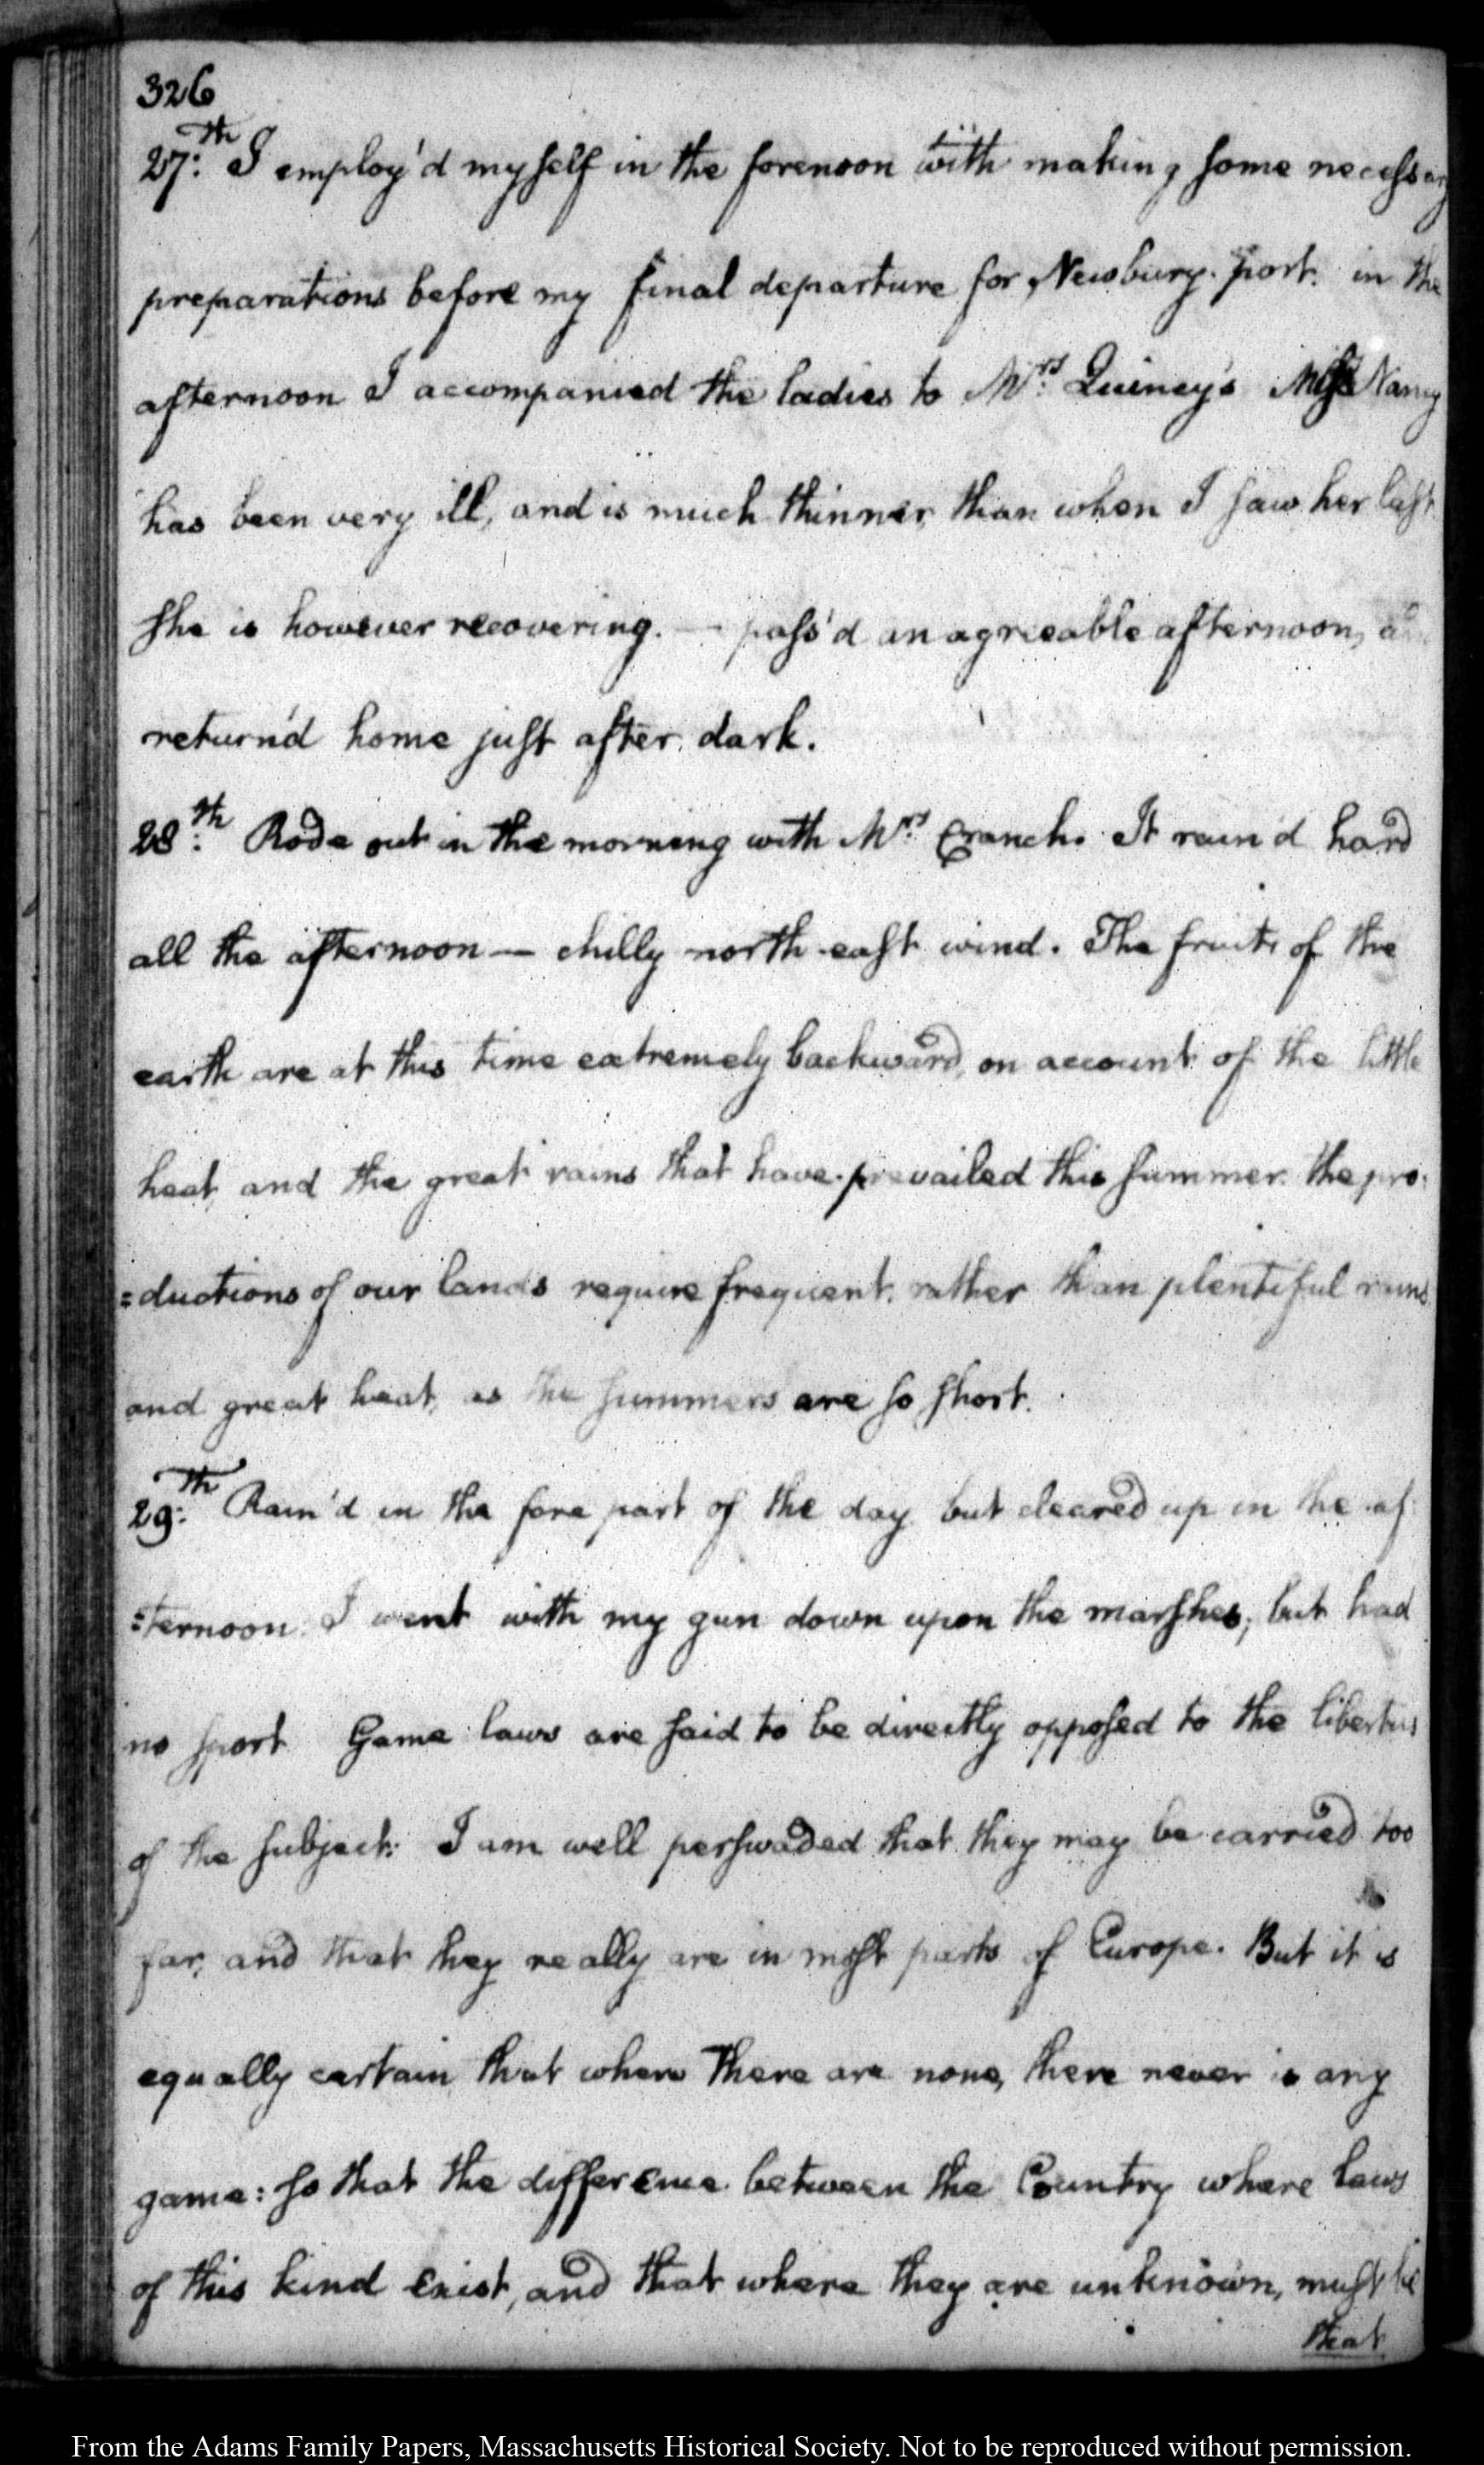 326
27:th I employ'd myself in the forenoon with making some necessary
preparations before my final departure for Newbury-port. in the
afternoon I accompanied the ladies to Mrs: Quincy's Miss Nancy
has been very ill, and is much thinner, than when I saw her last
She is however recovering. — pass'd an agreeable afternoon,
return'd home just after dark.
28:th Rode out in the morning with Mrs Cranch. It rain'd hard
all the afternoon — chilly north-east wind. The fruits of the
earth are at this time extremely backward, on account of the little
heat, and the great rains that have prevailed this summer. the pro:
=ductions of our lands require frequent, rather than plentiful rains
and great heat, as the summers are so short.
29:th Rain'd in the fore part of the day but cleared up in the af:
=ternoon. I went with my gun down upon the marshes; but had
no sport Game laws are said to be directly opposed to the liberties
of the subject: I am well perswaded that they may be carried too
far, and that they really are in most parts of Europe. But it is
equally certain that where there are none, there never is any
game: so that the difference between the Country where laws
of this kind exist, and that where they are unknown, must be
that
From the Adams Family Papers, Massachusetts Historical Society. Not to be reproduced without permission.